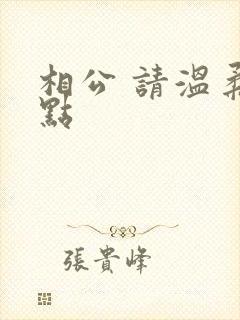 相公 請溫柔
點
張貴峰